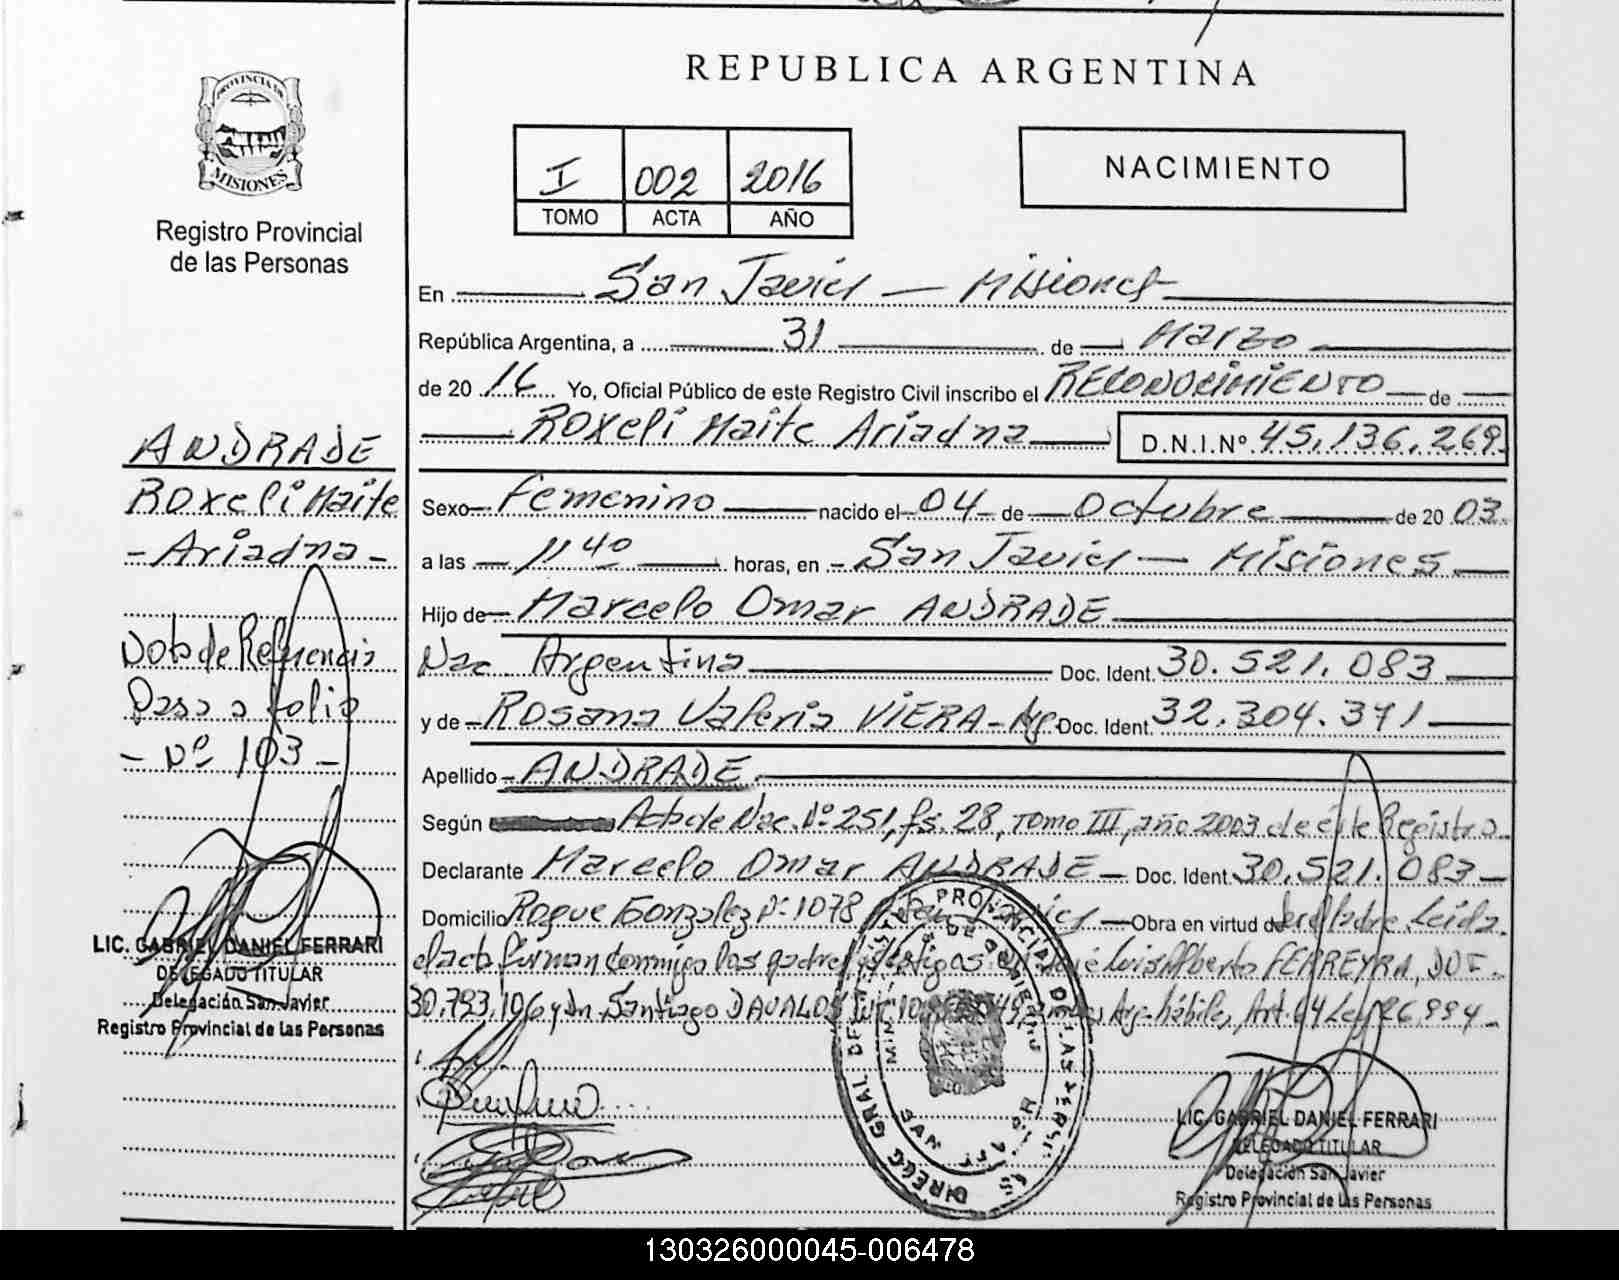 PROVINCIA DE
MISIONES
Registro Provincial
de las Personas
ANDRADE
Roxeli Maite
- Ariadna -
Nota de Referencia
Pasa a folio
- Nº 103 -
LIC. GABRIEL DANIEL FERRARI
DELEGADO TITULAR
Delegación San Javier
Registro Provincial de las Personas
REPUBLICA ARGENTINA
I 002 2016
TOMO ACTA AÑO
NACIMIENTO
En San Javier — Misiones
República Argentina, a 31 de Marzo
de 20 16 Yo, Oficial Público de este Registro Civil inscribo el RECONOCIMIENTO de
Roxeli Maite Ariadna D.N.I.Nº 45.136.269
Sexo Femenino nacido el 04 de Octubre de 20 03
a las 11 40 horas, en San Javier — Misiones
Hijo de Marcelo Omar ANDRADE
Nac. Argentina Doc. Ident. 30.521.083
y de Rosana Valeria VIERA - Arg. Doc. Ident. 32.304.371
Apellido ANDRADE
Según Acta de Nac. Nº 251, fs. 28, Tomo III, año 2003 de éste Registro
Declarante Marcelo Omar ANDRADE — Doc. Ident. 30.521.083
Domicilio Roque Gonzalez Nº 1078 Obra en virtud de Leida
el acta firman conmigo los padres Luis Alberto FERREYRA,
30.793.106 y Santiago DAVALOS Arg. hábiles, Art. 64 Ley 26.994
LIC. GABRIEL DANIEL FERRARI
DELEGADO TITULAR
Delegación San Javier
Registro Provincial de las Personas
130326000045-006478